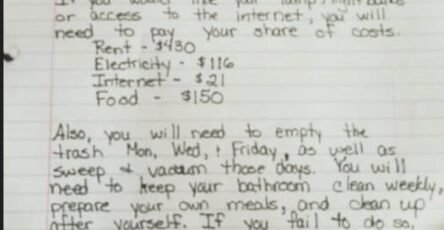 or access to the internet, you will
need to pay your share of costs.
Rent - $430
Electricity - $116
Internet - $21
Food - $150
Also, you will need to empty the
trash Mon, Wed, & Friday, as well as
sweep & vacuum those days. You will
need to keep your bathroom clean weekly,
prepare your own meals, and clean up
after yourself. If you fail to do so,